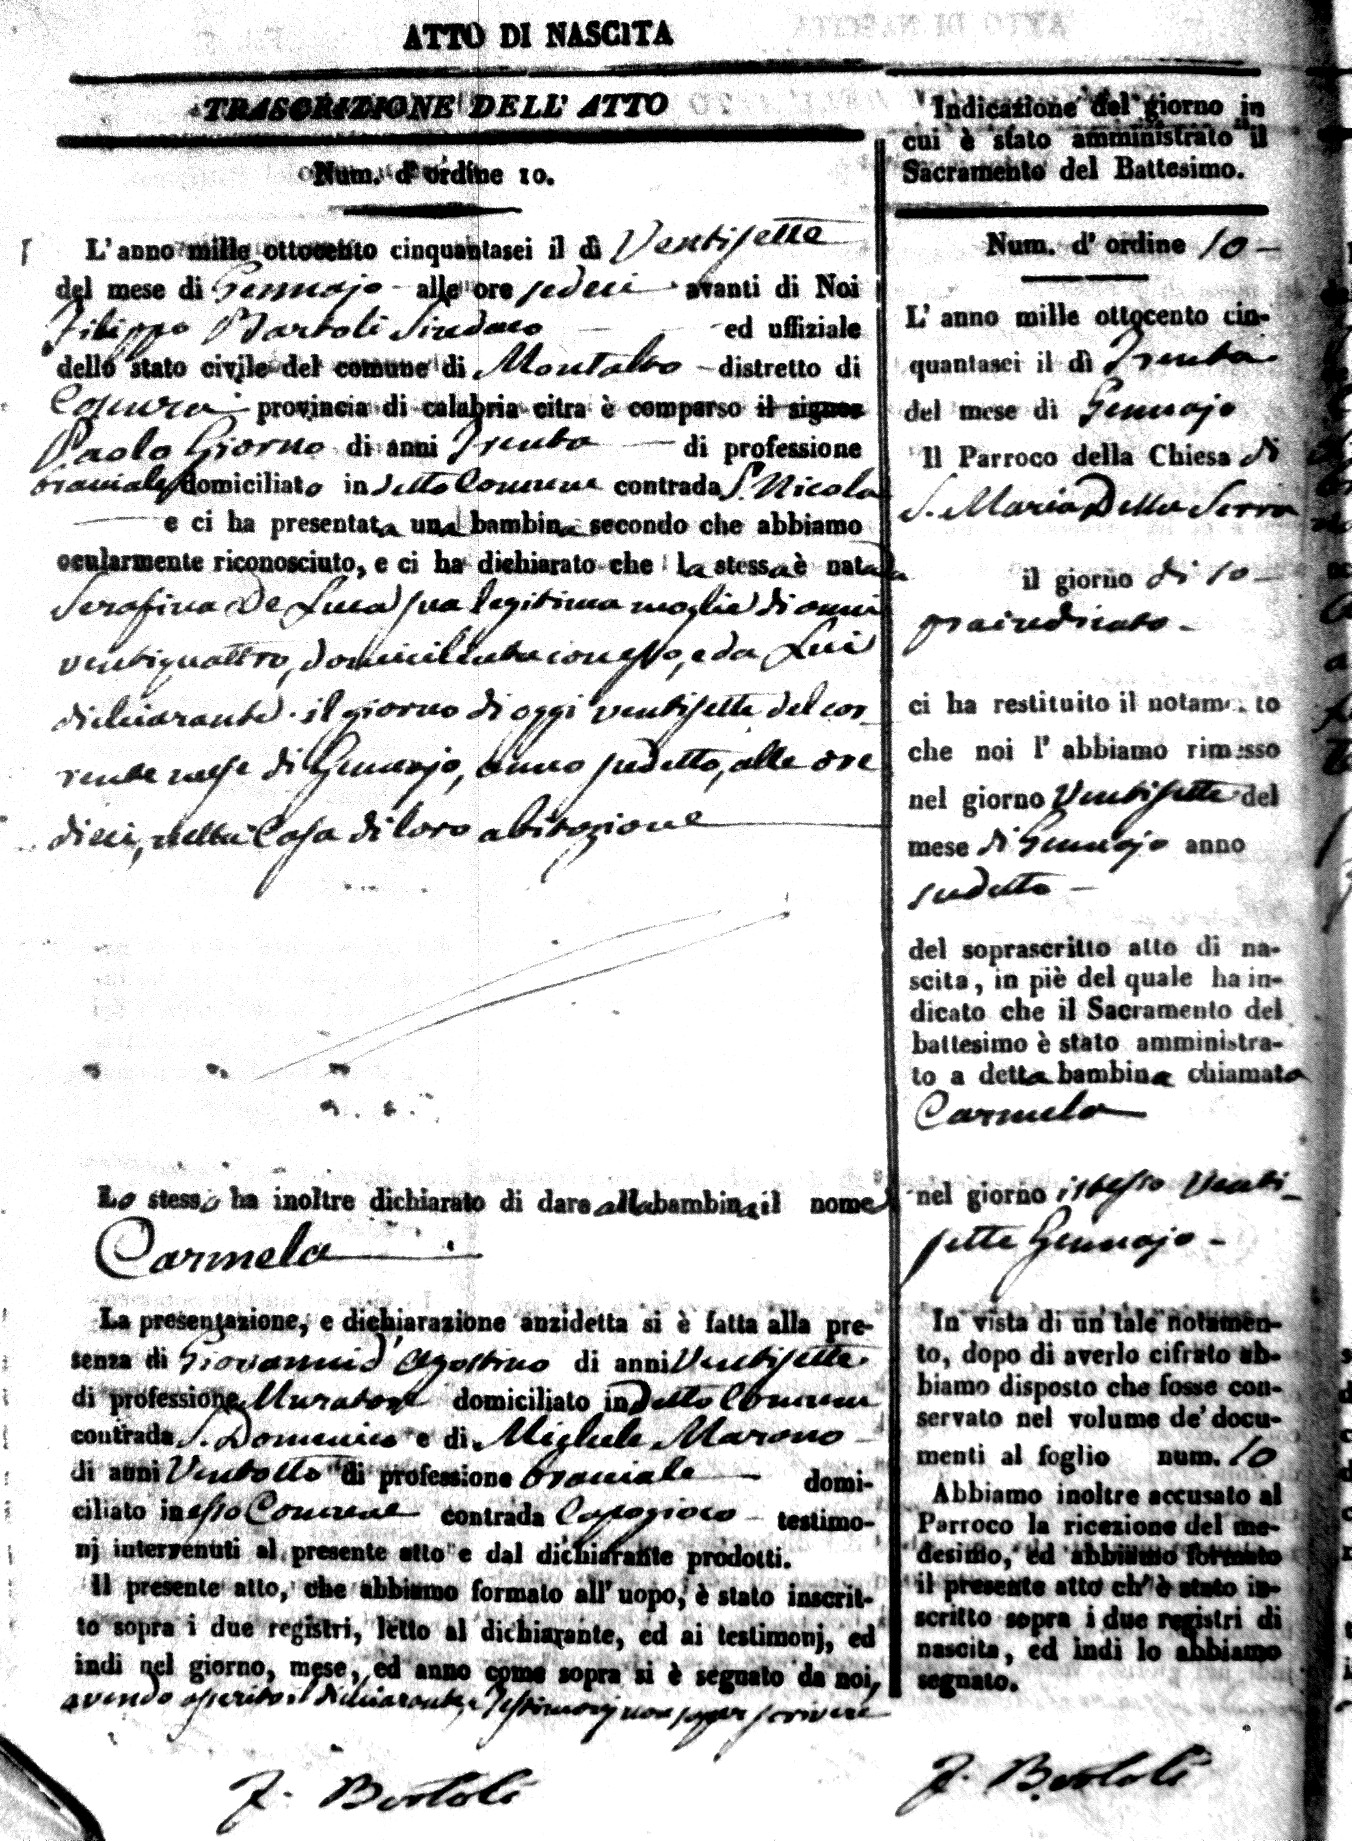 ATTO DI NASCITA
TRASCRIZIONE DELL' ATTO
Num. d' ordine 10.
L' anno mille ottocento cinquantasei il dì Ventisette
del mese di Gennajo alle ore sedici avanti di Noi
Filippo Bartoli Sindaco ed uffiziale
dello stato civile del comune di Montalto distretto di
Cosenza provincia di calabria citra è comparso il signor
Paolo Giorno di anni Trenta di professione
braciale domiciliato in detto Comune contrada S. Nicola
e ci ha presentata una bambina secondo che abbiamo
ocularmente riconosciuto, e ci ha dichiarato che la stessa è nata da
Serafina De Luca sua legitima moglie di anni
ventiquattro, domiciliata con esso, e da Lui
dichiarante. il giorno di oggi ventisette del cor-
rente mese di Gennajo, anno sudetto, alle ore
dieci, nella Casa di loro abitazione
Lo stesso ha inoltre dichiarato di dare alla bambina il nome
Carmela
La presentazione, e dichiarazione anzidetta si è fatta alla pre-
senza di Giovanni d' Agostino di anni Ventisette
di professione Muratore domiciliato in detto Comune
contrada S. Domenico e di Michele Marono
di anni Ventotto di professione braciale domi-
ciliato in esso Comune contrada testimo-
nj intervenuti al presente atto e dal dichiarante prodotti.
Il presente atto, che abbiamo formato all' uopo, è stato inscrit-
to sopra i due registri, letto al dichiarante, ed ai testimonj, ed
indi nel giorno, mese, ed anno come sopra si è segnato da noi,
avendo asserito il dichiarante, e Testimonj non saper scrivere
F. Bartoli
Indicazione del giorno in
cui è stato amministrato il
Sacramento del Battesimo.
Num. d' ordine 10
L' anno mille ottocento cin-
quantasei il dì Trenta
del mese di Gennajo
Il Parroco della Chiesa di
S. Maria Della Serra
il giorno di 10
praindicato
ci ha restituito il notamento
che noi l' abbiamo rimesso
nel giorno Ventisette del
mese di Gennajo anno
sudetto
del soprascritto atto di na-
scita, in piè del quale ha in-
dicato che il Sacramento del
battesimo è stato amministra-
to a detta bambina chiamata
Carmela
nel giorno istesso Venti-
sette Gennajo
In vista di un tale notamen-
to, dopo di averlo cifrato ab-
biamo disposto che fosse con-
servato nel volume de' docu-
menti al foglio num. 10
Abbiamo inoltre accusato al
Parroco la ricezione del me-
desimo, ed abbiamo formato
il presente atto ch' è stato in-
scritto sopra i due registri di
nascita, ed indi lo abbiamo
segnato.
F. Bartoli